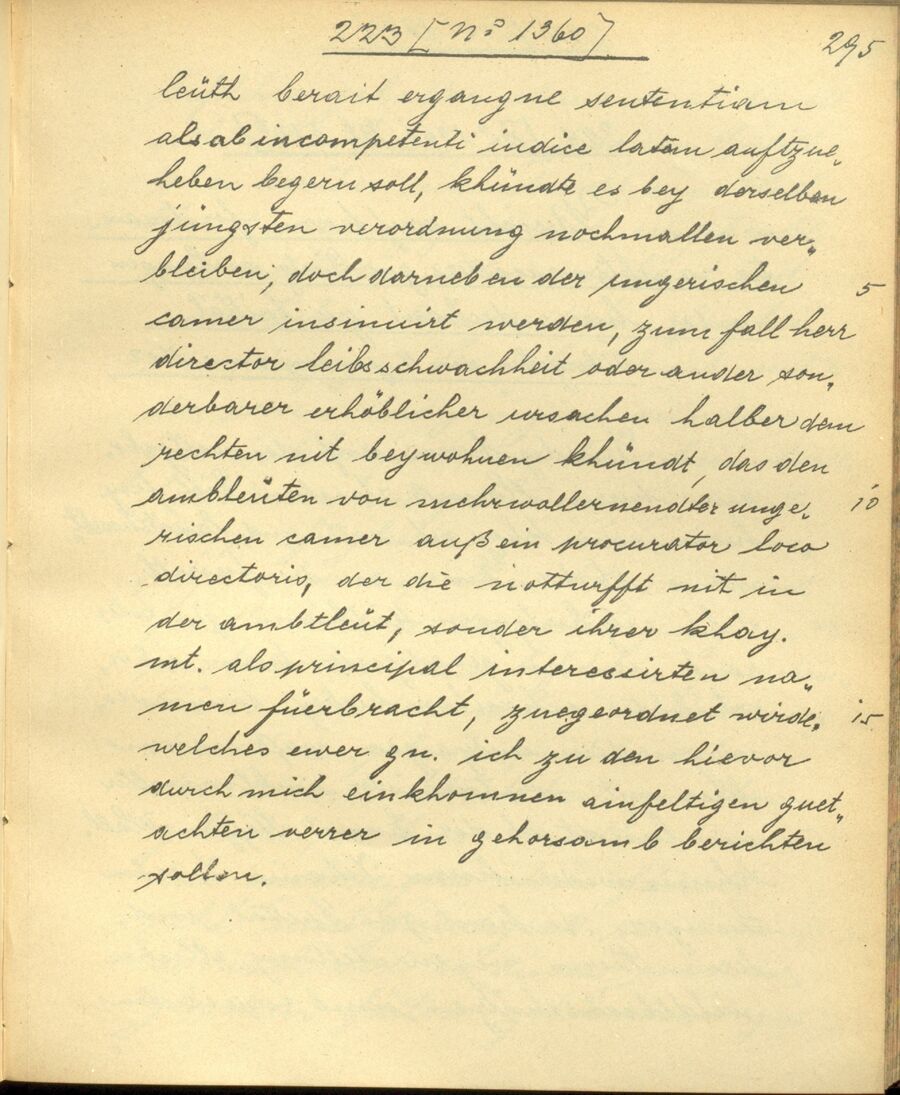 223 [No 1360]
295
leüth berait ergangne sententiam
als ab incompetenti iudice latam auftzue„
heben begern soll, khündte es bey derselben
jüngsten verordnung nochmallen ver„
bleiben, doch darneben der ungerischen 5
camer insinuirt werden, zum fall herr
director leibsschwachheit oder ander son„
derbarer erhöblicher ursachen halber dem
rechten nit beywohnen khündt, das den
ambleüten von mehrwollernendter unge„ 10
rischen camer außein procurator loco
directoris, der die notturfft nit in
der ambtleüt, sonder ihrer khay.
mt. als principal interessirten na„
men füerbracht, zuegeordnet wirde, 15
welches ewer gn. ich zu den hievor
durch mich einkhomnen ainfeltigen guet„
achten verrer in gehorsamb berichten
sollen.